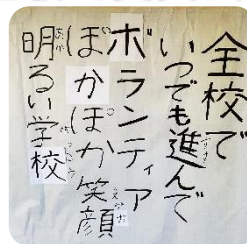 全校で
いつでも進んで
ボランティア
ぽかぽか笑顔
明るい学校